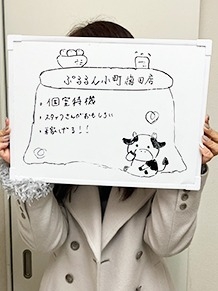 ぷるるん小町梅田店
・個室待機
・スタッフさんがおもしろい
・稼げる！！